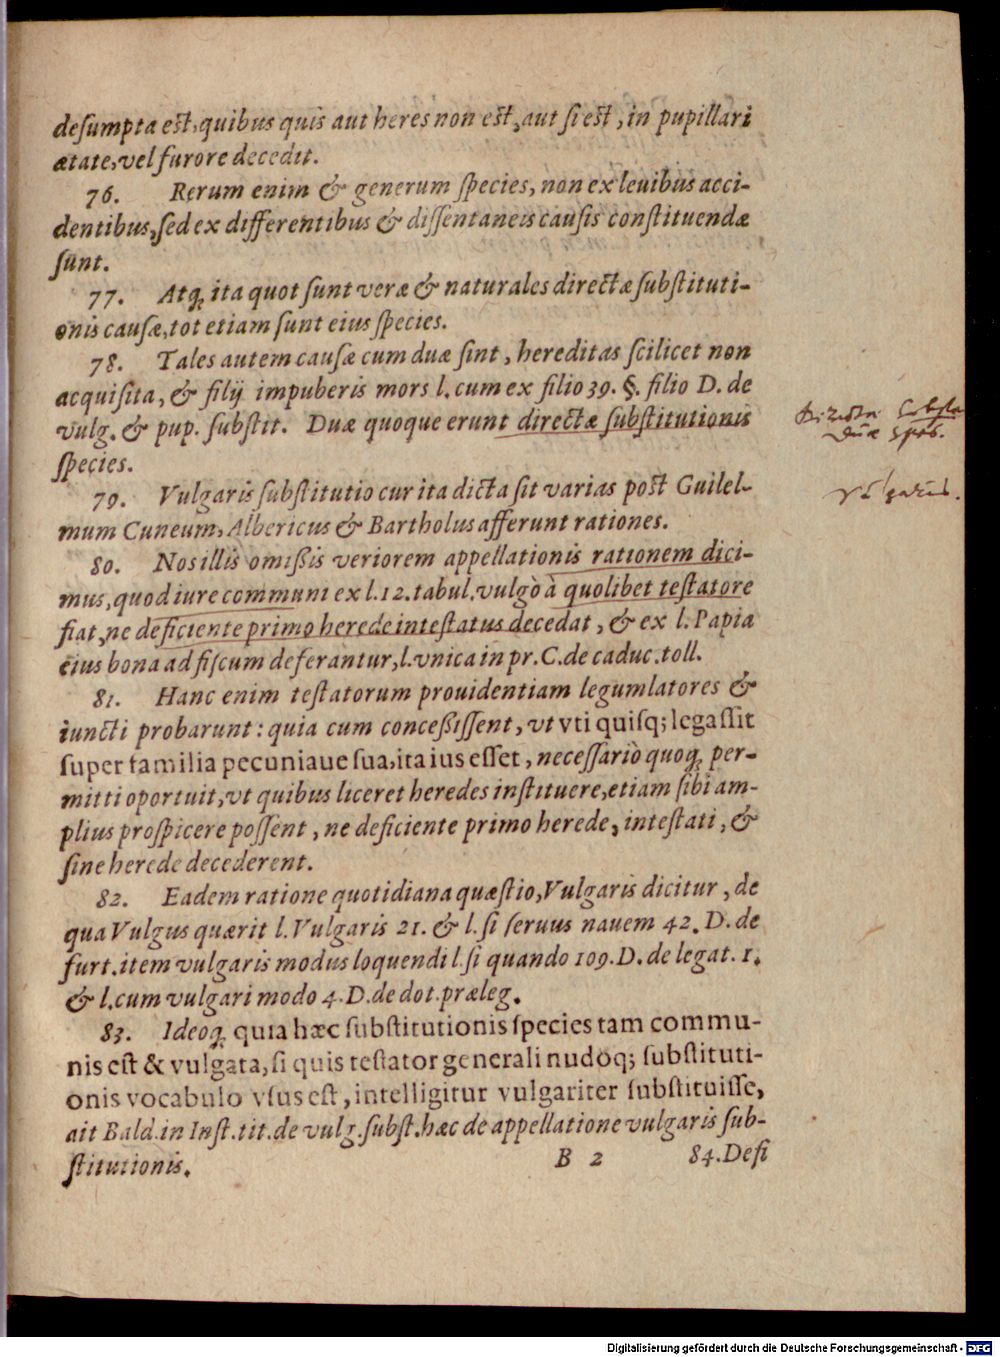 desumpta est, quibus quis aut heres non est, aut si est, in pupillari
ætate, vel furore decedit.
76. Rerum enim & generum species, non ex leuibus acci-
dentibus, sed ex differentibus & dissentaneis causis constituendæ
sunt.
77. Atq; ita quot sunt veræ & naturales directæ substituti-
onis causæ, tot etiam sunt eius species.
78. Tales autem causæ cum duæ sint, hereditas scilicet non
acquisita, & filij impuberis mors l. cum ex filio 39. §. filio D. de
vulg. & pup. substit. Duæ quoque erunt directæ substitutionis
species.
79. Vulgaris substitutio cur ita dicta sit varias post Guilel-
mum Cuneum, Albericus & Bartholus afferunt rationes.
80. Nos illis omißis veriorem appellationis rationem dici-
mus, quod iure communi ex l. 12. tabul. vulgò à quolibet testatore
fiat, ne deficiente primo herede intestatus decedat, & ex l. Papia
eius bona ad fiscum deferantur, l. vnica in pr. C. de caduc. toll.
81. Hanc enim testatorum prouidentiam legumlatores &
iuncti probarunt: quia cum conceßissent, vt vti quisq; legassit
super familia pecuniaue sua, ita ius esset, necessariò quoq; per-
mitti oportuit, vt quibus liceret heredes instituere, etiam sibi am-
plius prospicere possent, ne deficiente primo herede, intestati, &
sine herede decederent.
82. Eadem ratione quotidiana quæstio, Vulgaris dicitur, de
qua Vulgus quærit l. Vulgaris 21. & l. si seruus nauem 42. D. de
furt. item vulgaris modus loquendi l. si quando 109. D. de legat. 1.
& l. cum vulgari modo 4. D. de dot. præleg.
83. Ideoq; quia hæc substitutionis species tam commu-
nis est & vulgata, si quis testator generali nudoq; substituti-
onis vocabulo vsus est, intelligitur vulgariter substituisse,
ait Bald. in Inst. tit. de vulg. subst. hæc de appellatione vulgaris sub-
stitutionis.
B 2 84. Defi
duæ
Vulgaris.
Digitalisierung gefördert durch die Deutsche Forschungsgemeinschaft - DFG